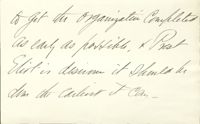 to get the organization completed
as early as possible, & Prest
Eliot is desirous it should be
done the earliest it can_